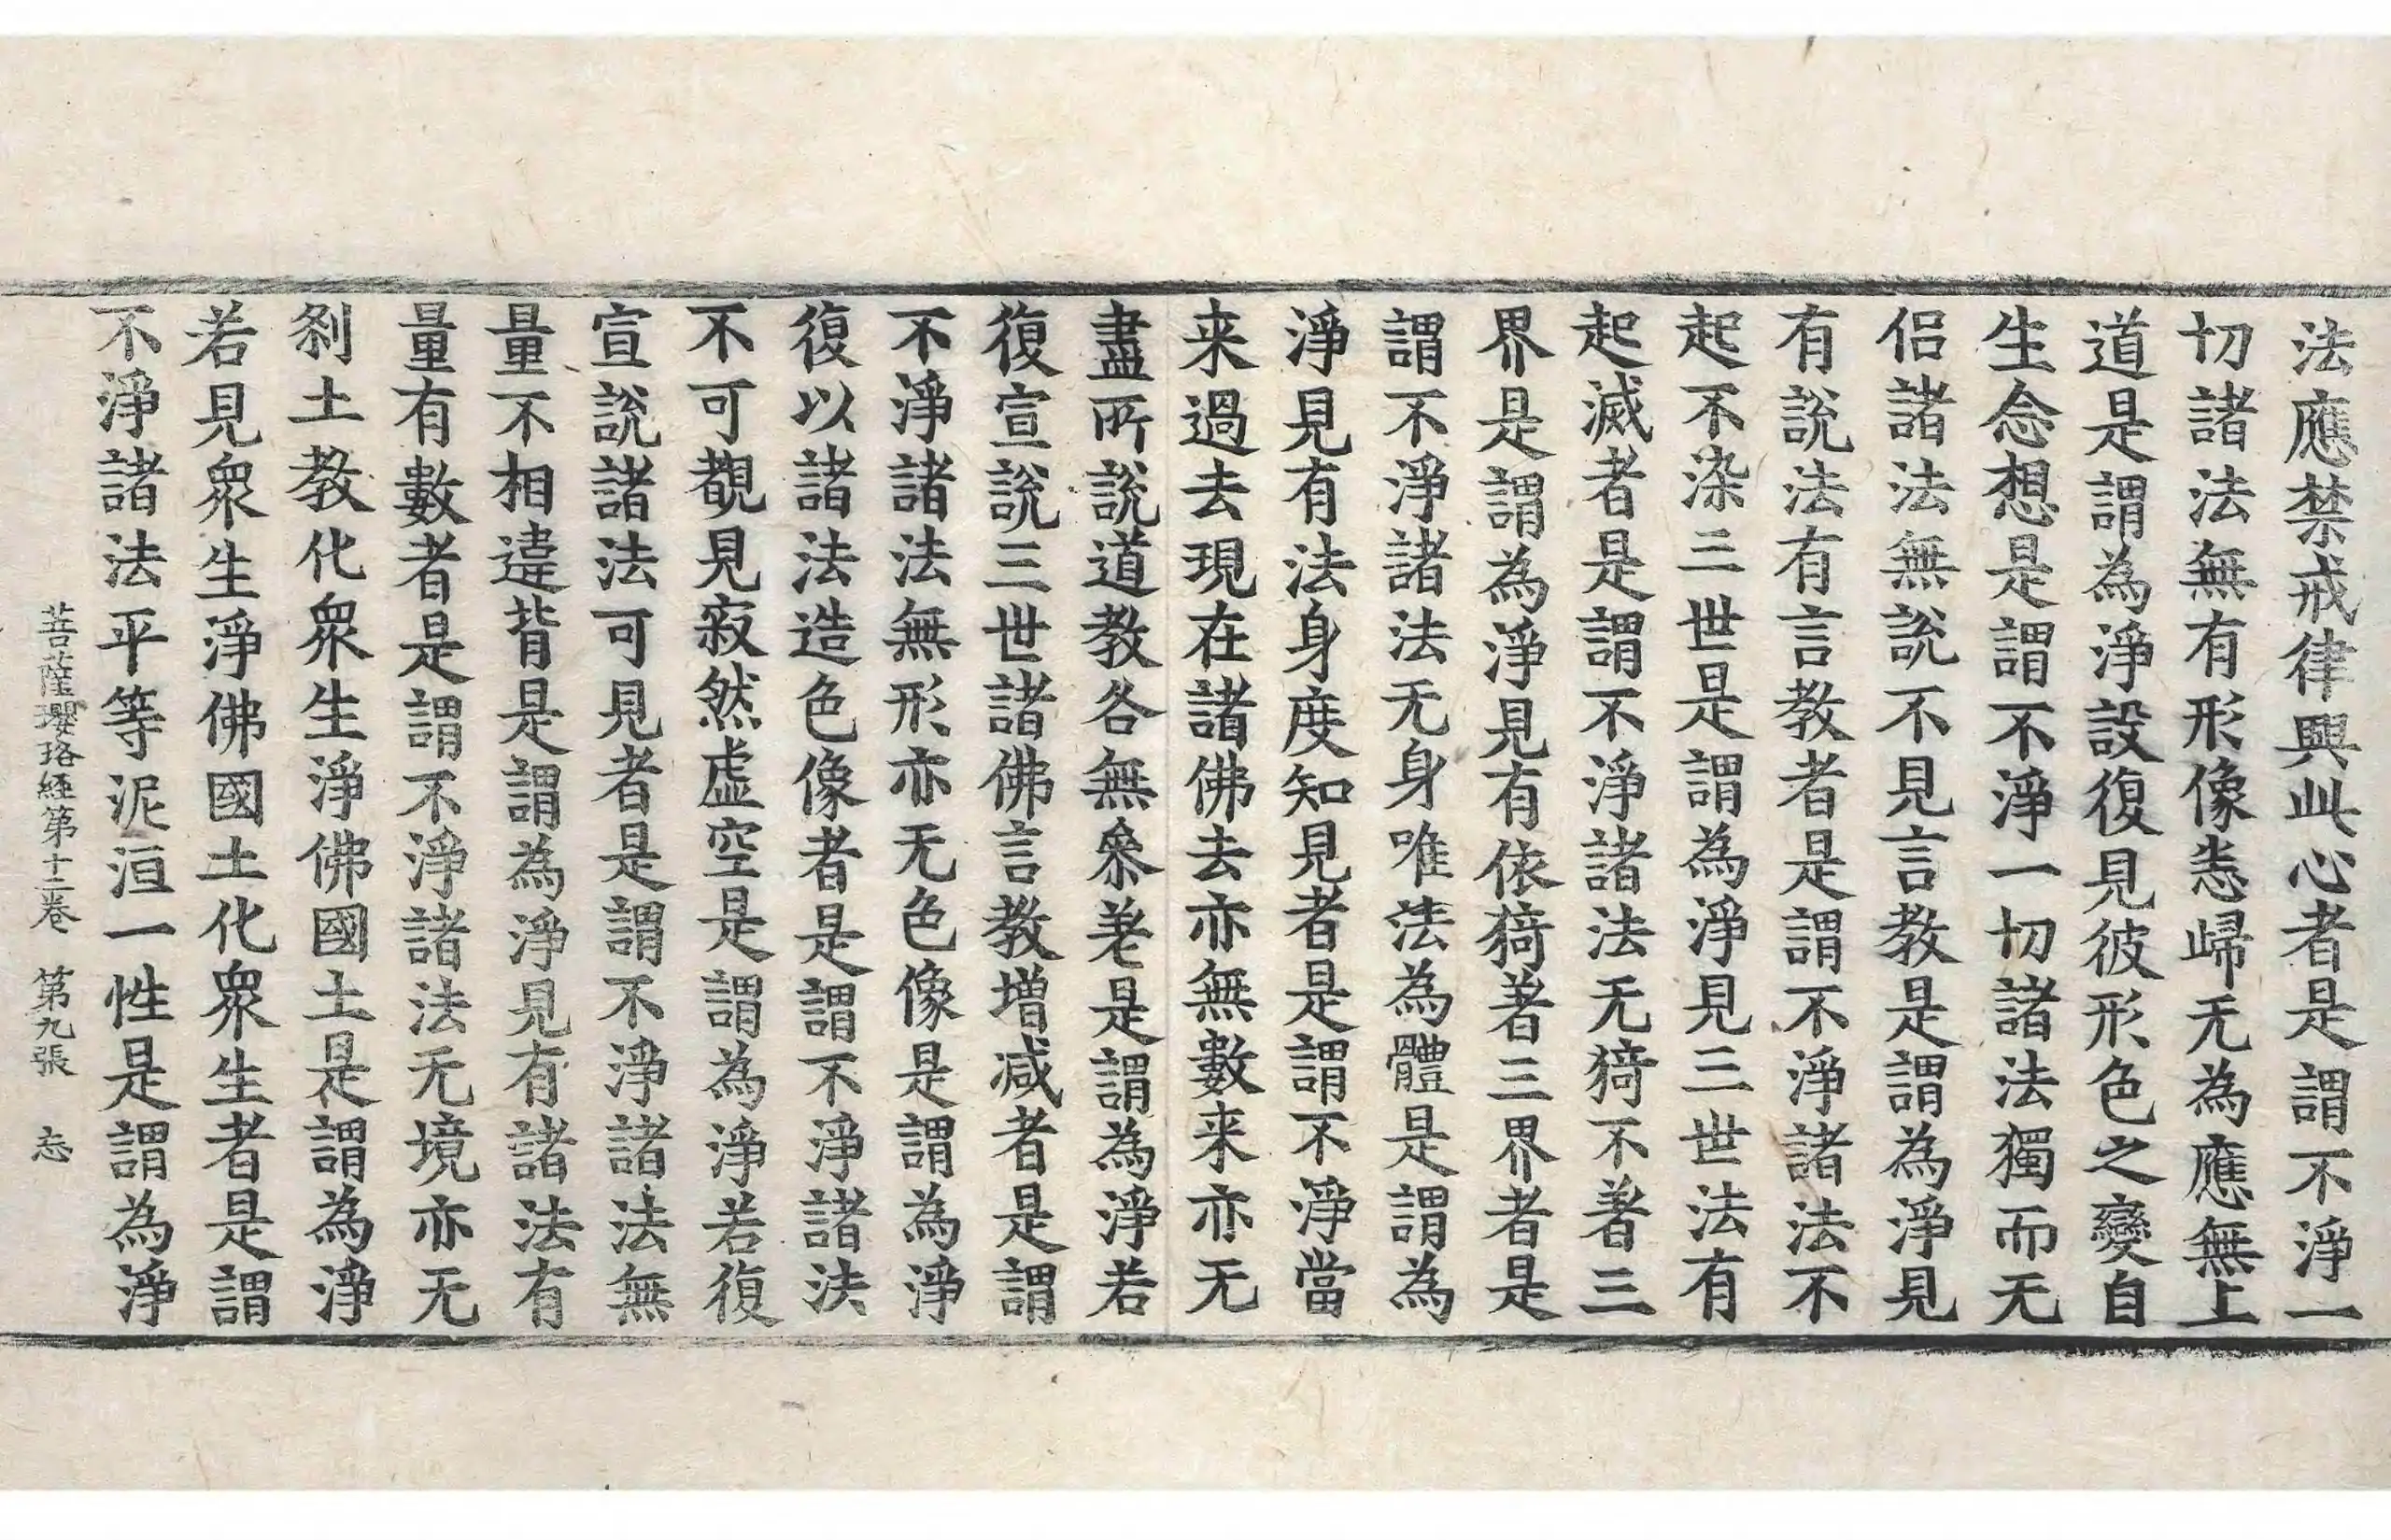 法應禁戒律興此心者是謂不淨一
切諸法無有形像悉歸无為應無上
道是謂為淨設復見彼形色之變自
生念想是謂不淨一切諸法獨而无
侶諸法無說不見言教是謂為淨見
有說法有言教者是謂不淨諸法不
起不染三世是謂為淨見三世法有
起滅者是謂不淨諸法无猗不著三
界是謂為淨見有依猗著三界者是
謂不淨諸法无身唯法為體是謂為
淨見有法身度知見者是謂不淨當
来過去現在諸佛去亦無數来亦无
盡所說道教各無叅差是謂為淨若
復宣說三世諸佛言教增减者是謂
不淨諸法無形亦无色像是謂為淨
復以諸法造色像者是謂不淨諸法
不可覩見寂然虛空是謂為淨若復
宣說諸法可見者是謂不淨諸法無
量不相違背是謂為淨見有諸法有
量有數者是謂不淨諸法无境亦无
剎土教化衆生淨佛國土是謂為淨
若見衆生淨佛國土化衆生者是謂
不淨諸法平等泥洹一性是謂為淨
菩薩瓔珞經第十二卷　第九張　忘